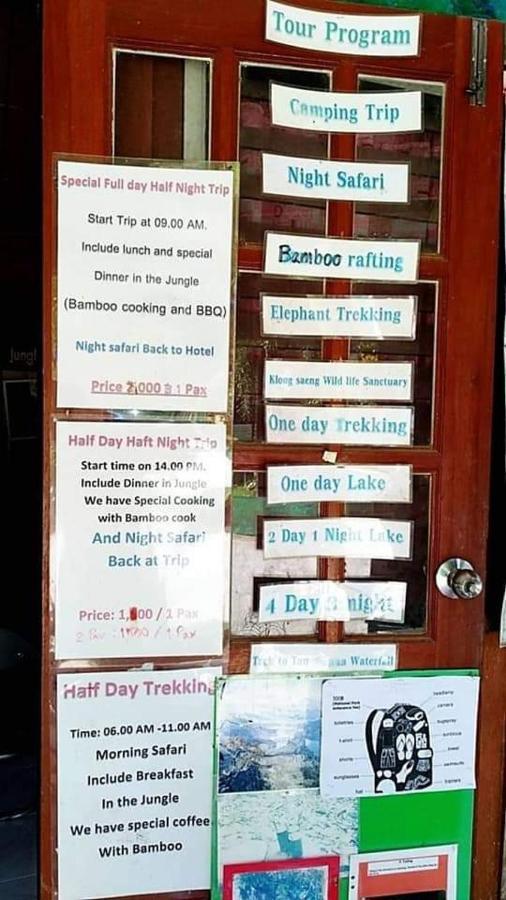 Tour Program
Camping Trip
Night Safari
Bamboo rafting
Elephant Trekking
Klong saeng Wild life Sanctuary
One day Trekking
One day Lake
2 Day 1 Night Lake
4 Day night
Special Full day Half Night Trip
Start Trip at 09.00 AM.
Include lunch and special
Dinner in the Jungle
(Bamboo cooking and BBQ)
Night safari Back to Hotel
Price 2,000 ฿ 1 Pax
Half Day Haft Night Trip
Start time on 14.00 PM.
Include Dinner in Jungle
We have Special Cooking
with Bamboo cook
And Night Safari
Back at Trip
Price: 1, 00 / 1 Pax
/ 1 Pax
Half Day Trekking
Time: 06.00 AM -11.00 AM
Morning Safari
Include Breakfast
In the Jungle
We have special coffee
With Bamboo
Trek to Waterfall
headlamp
camera
toiletries
bugspray
t-shirt
sunblock
shorts
towel
sunglasses
swimsuits
hat
trainers